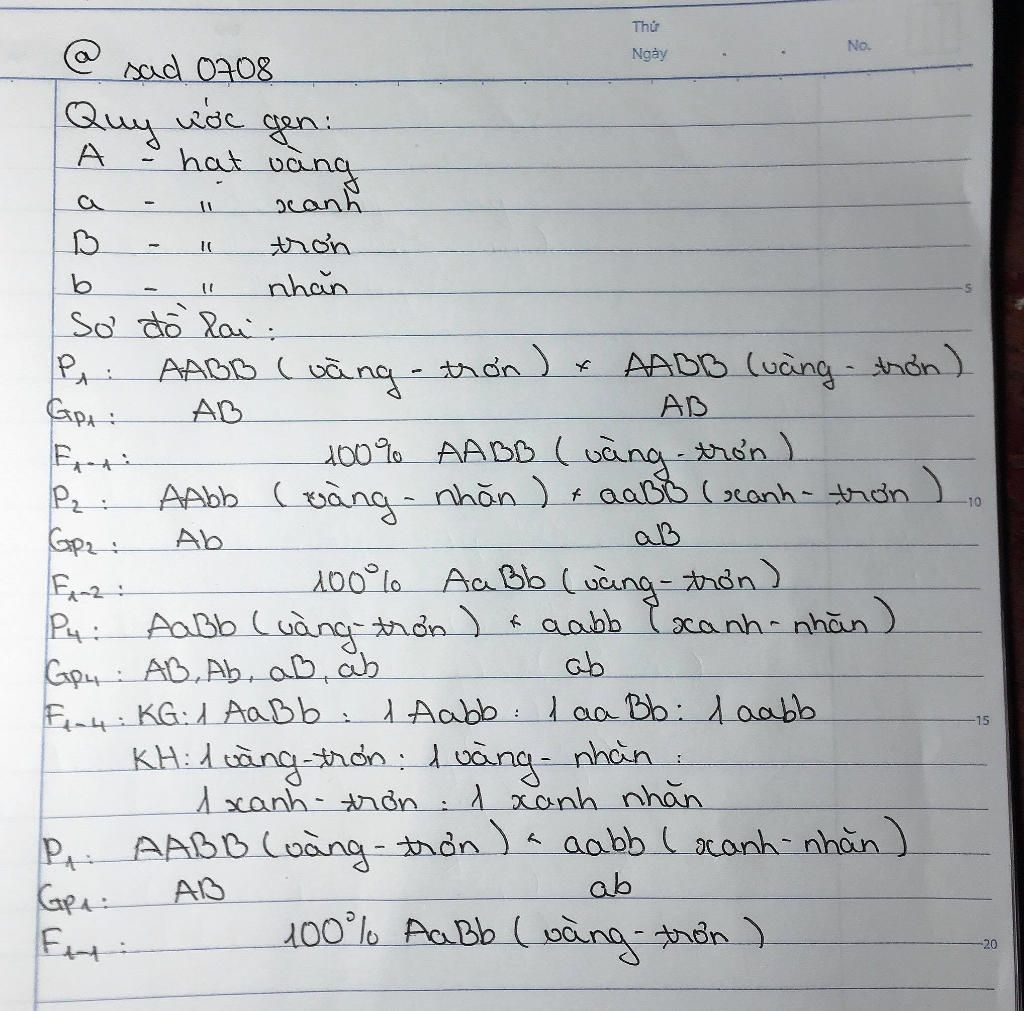 Thứ
Ngày . . No.
@ sad 0708
Quy ước gen:
A - hạt vàng
a - " xanh
B - " trơn
b - " nhăn
Sơ đồ lai:
P1: AABB (vàng - trơn) × AABB (vàng - trơn)
GP1: AB AB
F1-1: 100% AABB (vàng - trơn)
P2: AAbb (vàng - nhăn) × aaBB (xanh - trơn) 10
GP2: Ab aB
F1-2: 100% AaBb (vàng - trơn)
P4: AaBb (vàng - trơn) × aabb (xanh - nhăn)
GP4: AB, Ab, aB, ab ab
F1-4: KG: 1 AaBb : 1 Aabb : 1 aaBb : 1 aabb 15
KH: 1 vàng - trơn : 1 vàng - nhăn :
1 xanh - trơn : 1 xanh nhăn
P1: AABB (vàng - trơn) × aabb (xanh - nhăn)
GP1: AB ab
F1-1: 100% AaBb (vàng - trơn) 20
5